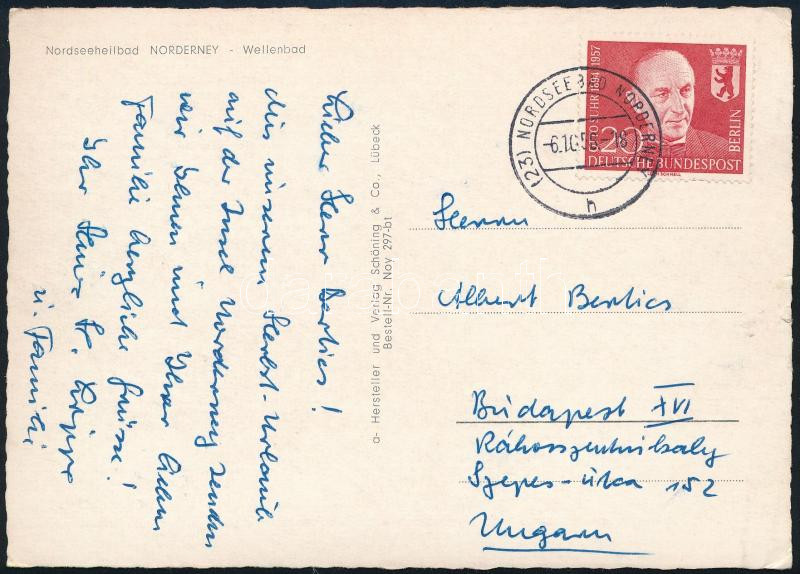 Nordseeheilbad NORDERNEY - Wellenbad
Lieber Herr Berlics!
Aus unserem Herbst-Urlaub
auf der Insel Norderney senden
wir Ihnen und Ihrer lieben
Familie herzliche Grüsse!
Ihr
u. Familie
a- Hersteller und Verlag Schöning & Co., Lübeck
Bestell-Nr. Noy 297-bt
(23) NORDSEEBAD NORDERNEY
h
1894-1957
20
BERLIN
DEUTSCHE BUNDESPOST
Herrn
Albert Berlics
Budapest XVI
Rákosszentmihály
Szepes-útca 152
Ungarn